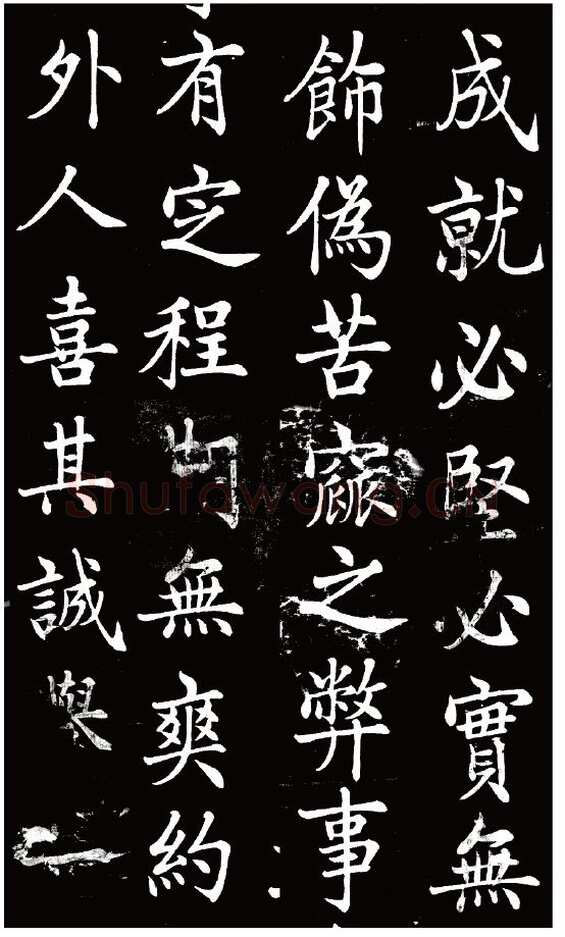 成就必堅必實無
飾偽苦窳之弊事
有定程無爽約
外人喜其誠與
Shufawang.cn